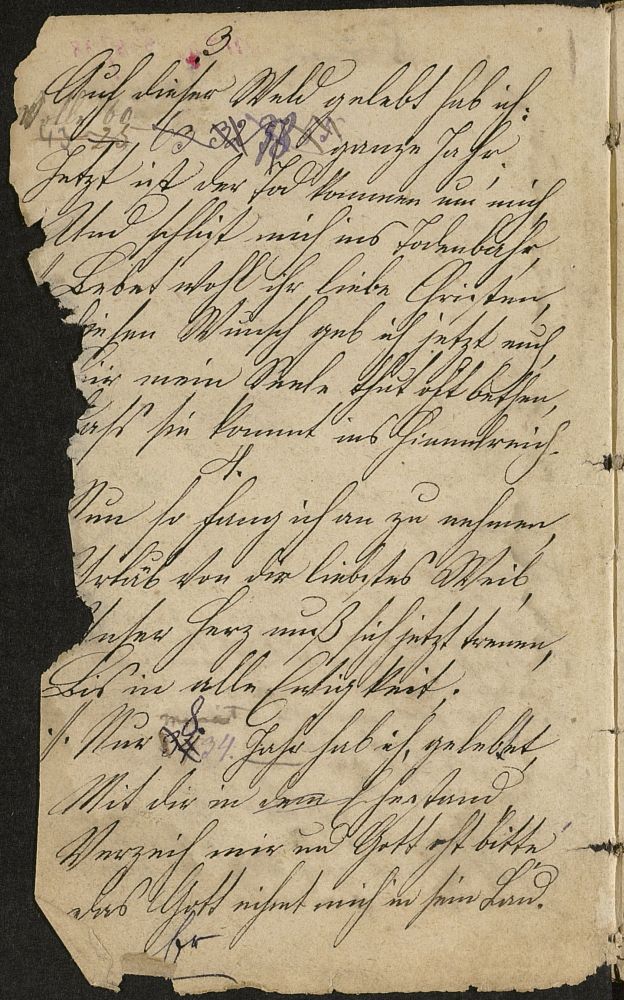 3
Auf dieser Weld gelebt hab ich:
60
43 23 63 38 ganze Jahr,
Jetzt ist der Tod kommen um mich,
Und schlist mich ins Todenbahr,
Lebet wohl ihr liebe Christen,
diesen Wunsch geb ich jetzt euch,
Fir mein Seele thut oft bethen,
dass sie kommt ins Himmelreich.
4.
Nun so fang ich an zu nehmen,
Urlaub von dir liebstes Weib,
Unser Herz muß sich jetzt trenen,
Bis in alle Ewigkeit.
8.
./. Nur 34. Jahr hab ich, gelebtet,
Mit dir in dem Ehestand,
Verzeih mir und Gott oft bitte
das Gott nihmt mich in sein Land.